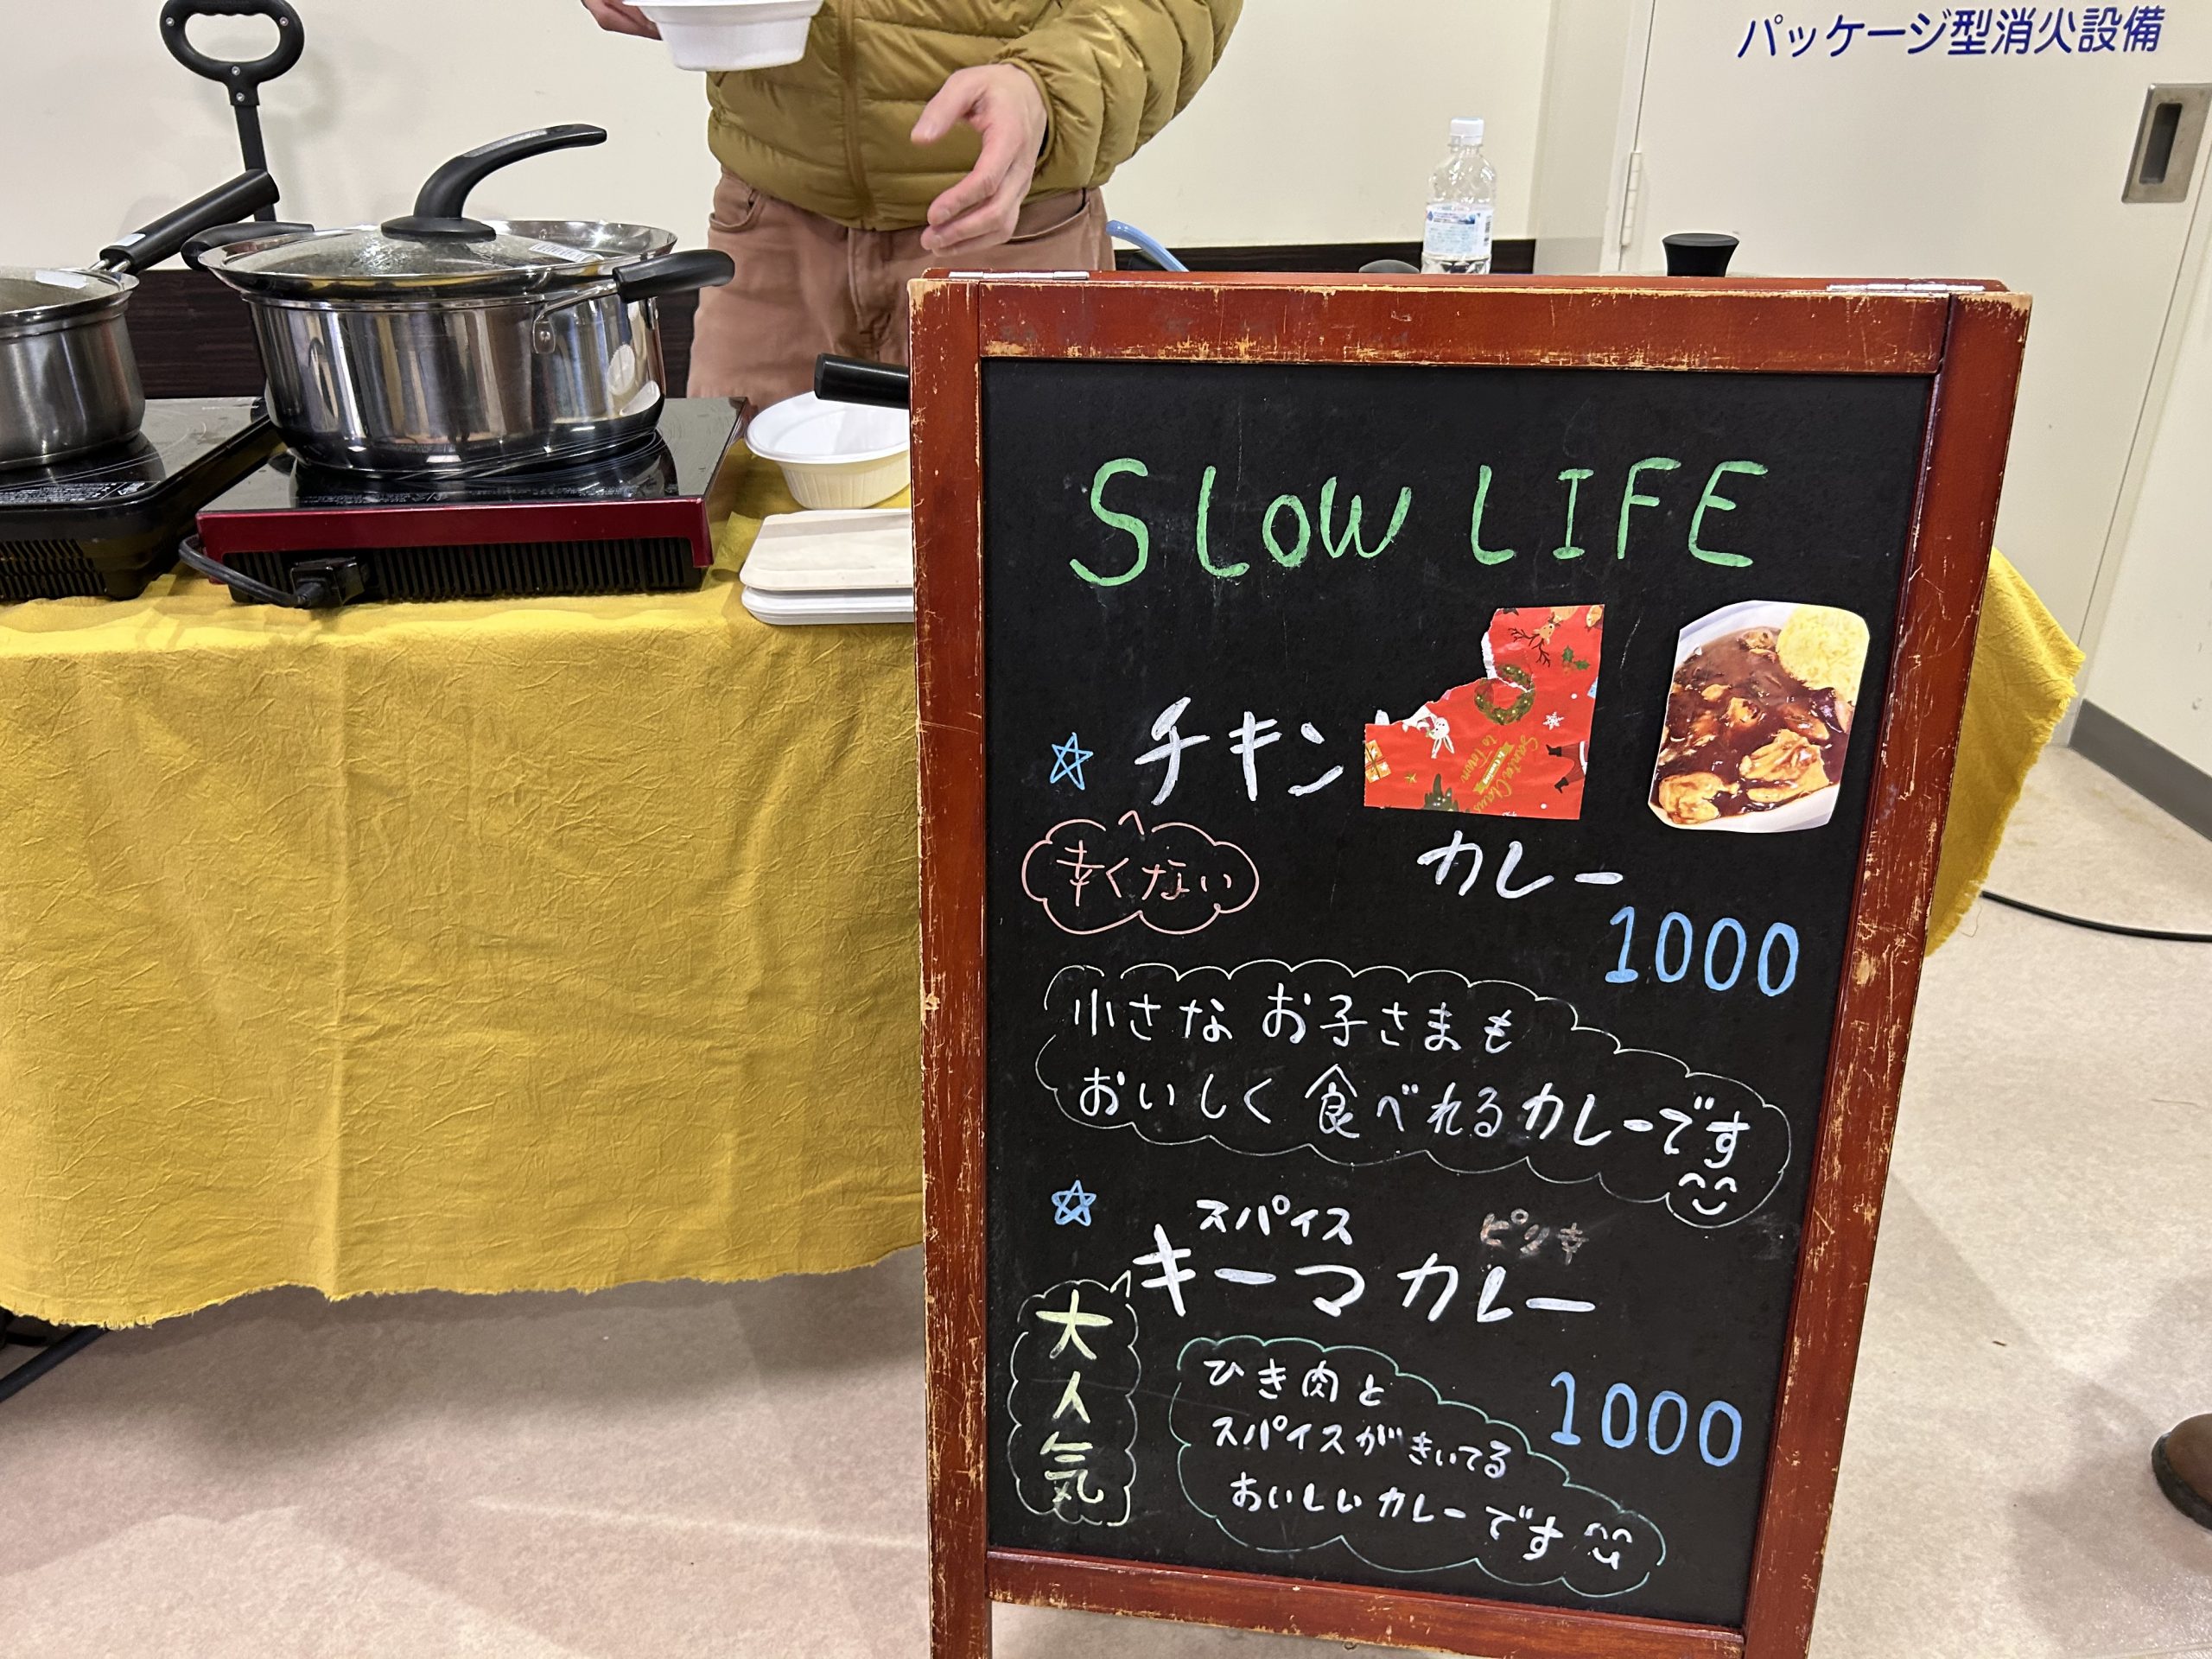 パッケージ型消火設備
SLOW LIFE
チキン
Santa Claus
to town
カレー
辛くない
1000
小さなお子さまも
おいしく食べれるカレーです
スパイス
ピリ辛
キーマカレー
大人気
ひき肉と
スパイスがきいてる
おいしいカレーです
1000